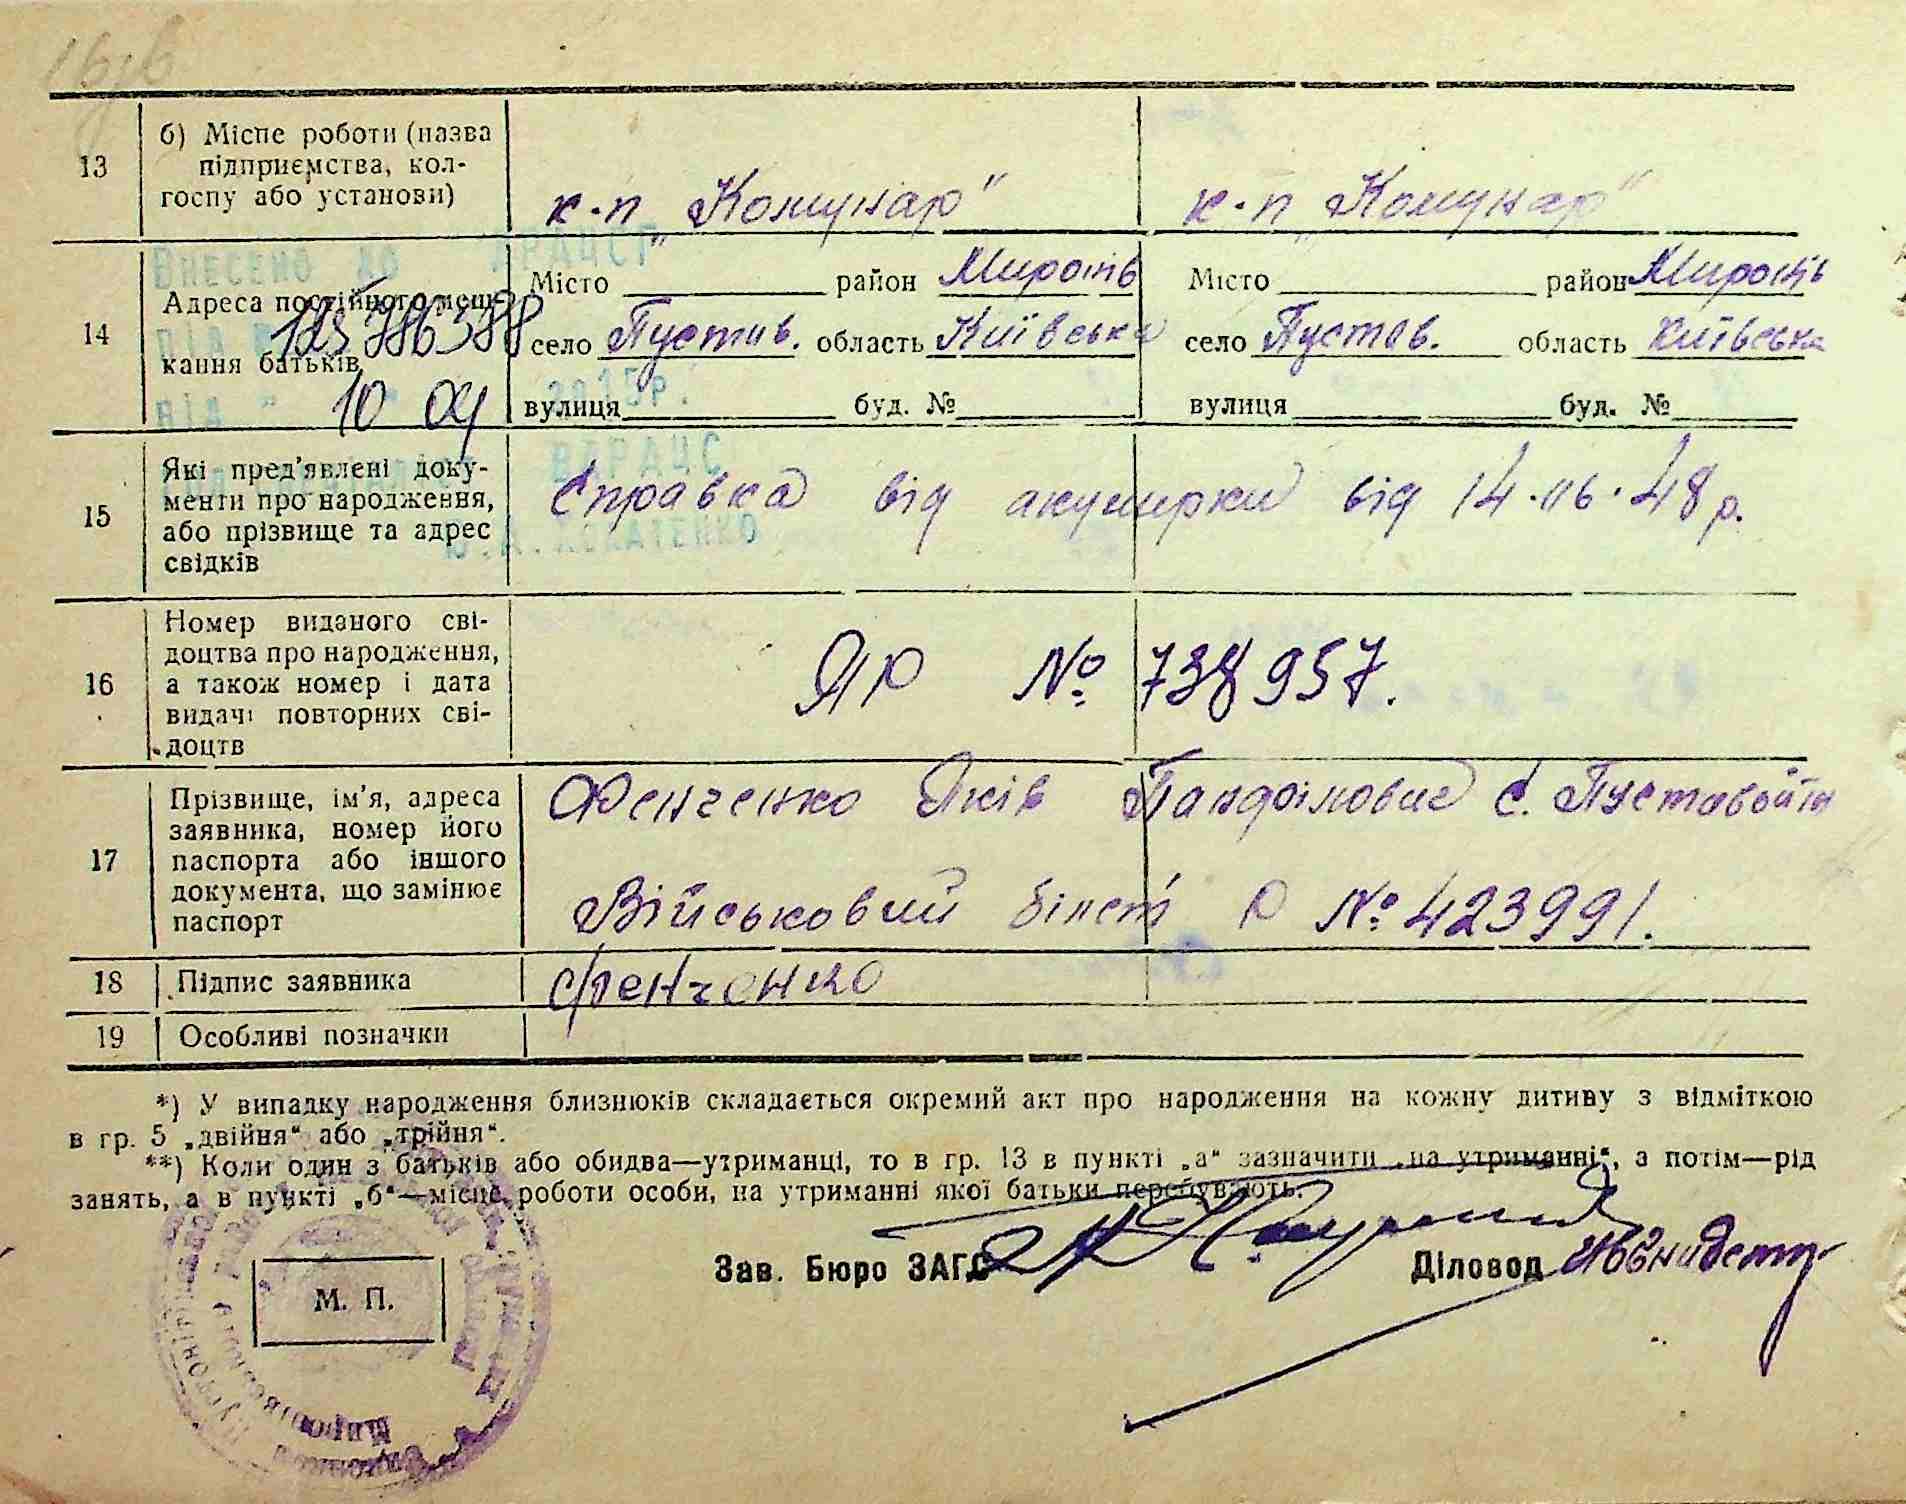 13
б) Місце роботи (назва
підприємства, кол-
госпу або установи)
к-п „Комунар"
к-п „Комунар"
Внесено до ДРАЦСГ
14
Адреса постійного меш-
кання батьків
під № 125786388
від " 10 " 04 2015р.
Місто район Миропів
село Пустав. область Київська
вулиця буд. №
Місто район Миропів
село Пустав. область Київська
вулиця буд. №
ВДРАЦС
15
Які пред'явлені доку-
менти про народження,
або прізвище та адрес
свідків
Справка від акушерки від 14.06.48 р.
16
Номер виданого сві-
доцтва про народження,
а також номер і дата
видачі повторних сві-
доцтв
ЯЮ № 738957.
17
Прізвище, ім'я, адреса
заявника, номер його
паспорта або іншого
документа, що замінює
паспорт
Фенченко Яків Панфілович с. Пуставойти
Військовий білет Ю № 423991.
18
Підпис заявника
Фенченко
19
Особливі позначки
*) У випадку народження близнюків складається окремий акт про народження на кожну дитину з відміткою
в гр. 5 „двійня“ або „трійня“.
**) Коли один з батьків або обидва—утриманці, то в гр. 13 в пункті „а“ зазначити „на утриманні“, а потім—рід
занять, а в пункті „б“—місце роботи особи, на утриманні якої батьки перебувають.
Зав. Бюро ЗАГС
Діловод
М. П.